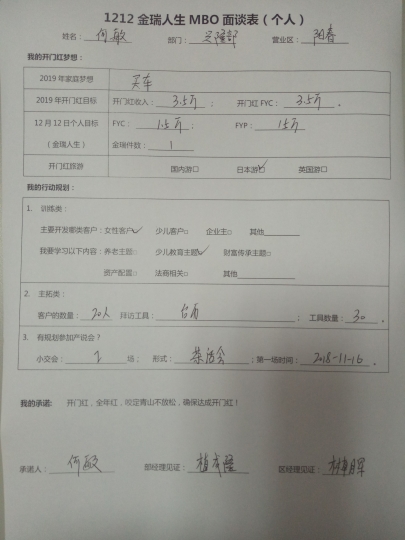 1212 金瑞人生 MBO 面谈表（个人）
姓名： 何敏 部门： 兴隆部 营业区： 阳春
我的开门红梦想：
2019 年家庭梦想 买车
2019 年开门红目标 开门红收入： 3.5万 ； 开门红 FYC： 3.5万 .
12 月 12 日个人目标 FYC： 1.5万 ； FYP： 15万
（金瑞人生） 金瑞件数： 1
开门红旅游 国内游□ 日本游☑ 英国游□
我的行动规划：
1. 训练类：
主要开发哪类客户：女性客户☑ 少儿客户□ 企业主□ 其他
我要学习以下内容：养老主题□ 少儿教育主题☑ 财富传承主题□
资产配置□ 法商相关□ 其他
2. 主拓类：
客户的数量： 20人 拜访工具： 台历 ； 工具数量： 30 .
3. 有规划参加产说会？
小交会： 1 场； 形式： 茶话会 ；第一场时间： 2018-11-16 .
我的承诺： 开门红，全年红，咬定青山不放松，确保达成开门红！
承诺人： 何敏 部经理见证： 区经理见证：